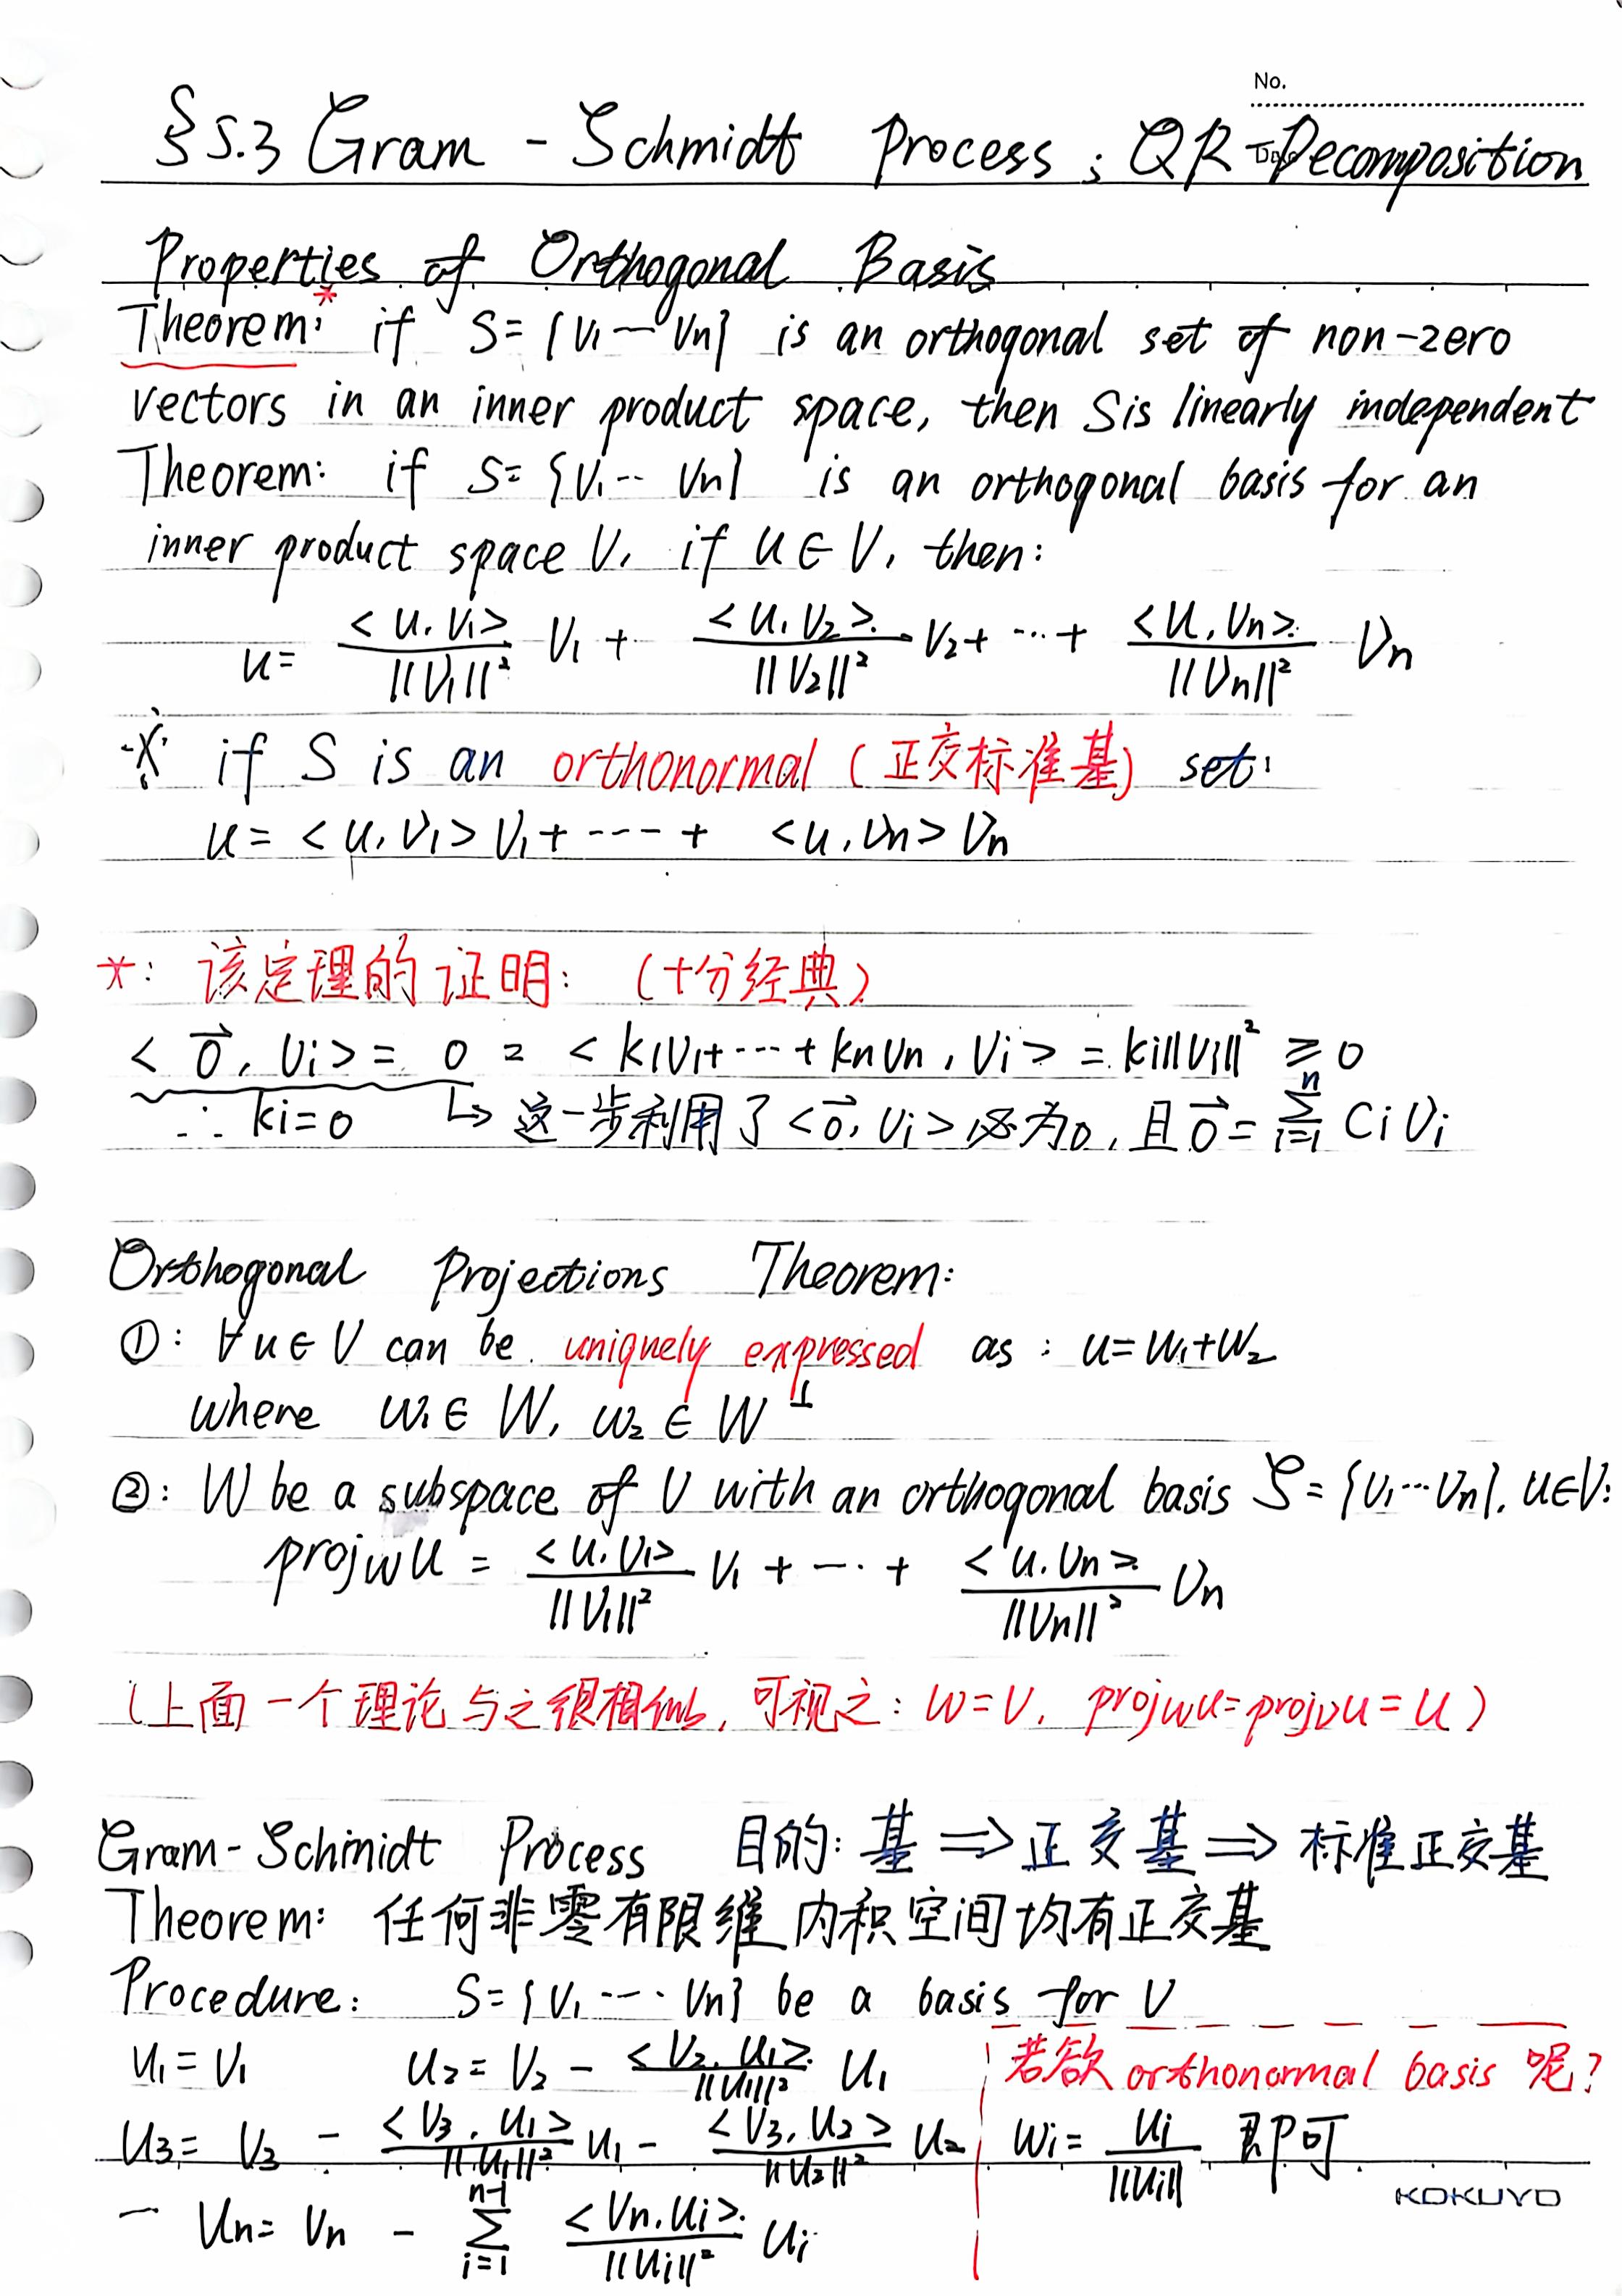 No.
§5.3 Gram-Schmidt Process; QR-Decomposition
Properties of Orthogonal Basis
Theorem*: if S={v₁—vₙ} is an orthogonal set of non-zero
vectors in an inner product space, then S is linearly independent
Theorem: if S={v₁--vₙ} is an orthogonal basis for an
inner product space V, if u∈V, then:
u= <u,v₁>/||v₁||² v₁ + <u,v₂>/||v₂||² v₂+ ⋯+ <u,vₙ>/||vₙ||² vₙ
※ if S is an orthonormal (正交标准基) set:
u=<u,v₁>v₁+----+ <u,vₙ>vₙ
*: 该定理的证明: (十分经典)
<0⃗, vᵢ>= 0 = <k₁v₁+⋯+kₙvₙ, vᵢ> = kᵢ||vᵢ||² ≥0
∴ kᵢ=0 ↳ 这一步利用了<0⃗, vᵢ>必为0, 且0⃗=∑ⁿᵢ₌₁ Cᵢvᵢ
Orthogonal Projections Theorem:
①: ∀u∈V can be uniquely expressed as: u=w₁+w₂
where w₁∈W, w₂∈W⊥
②: W be a subspace of V with an orthogonal basis S={v₁⋯vₙ}, u∈V:
projwu = <u,v₁>/||v₁||² v₁ + ⋯ + <u,vₙ>/||vₙ||² vₙ
(上面一个理论与之很相似, 可视之: W=V, projwu=projvu=u)
Gram-Schmidt Process 目的: 基⇒正交基⇒标准正交基
Theorem: 任何非零有限维内积空间均有正交基
Procedure: S={v₁---vₙ} be a basis for V
u₁=v₁ u₂=v₂ - <v₂,u₁>/||u₁||² u₁
若欲 orthonormal basis 呢?
u₃= v₃ - <v₃,u₁>/||u₁||² u₁ - <v₃,u₂>/||u₂||² u₂
wᵢ= uᵢ/||uᵢ|| 即可
— uₙ= vₙ - ∑ⁿ⁻¹ᵢ₌₁ <vₙ,uᵢ>/||uᵢ||² uᵢ
KOKUYO